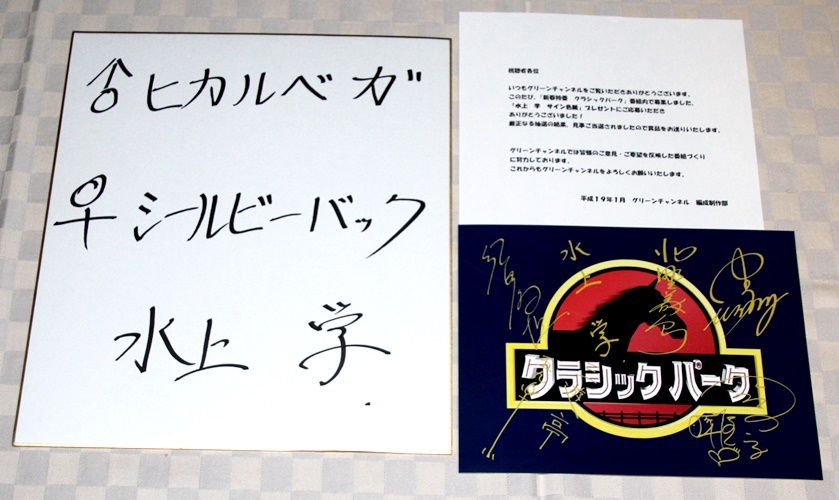 ♂ヒカルベガ
♀シールビーバック
水上 学
視聴者各位
いつもグリーンチャンネルをご覧いただきありがとうございます。
このたび、「新春特番 クラシックパーク」番組内で募集しました、
「水上 学 サイン色紙」プレゼントにご応募いただき
ありがとうございました！
厳正なる抽選の結果、見事ご当選されましたので賞品をお送りいたします。
グリーンチャンネルでは皆様のご意見・ご要望を反映した番組づくり
に努力しております。
これからもグリーンチャンネルをよろしくお願いいたします。
平成19年1月 グリーンチャンネル 編成制作部
水上 学
クラシックパーク